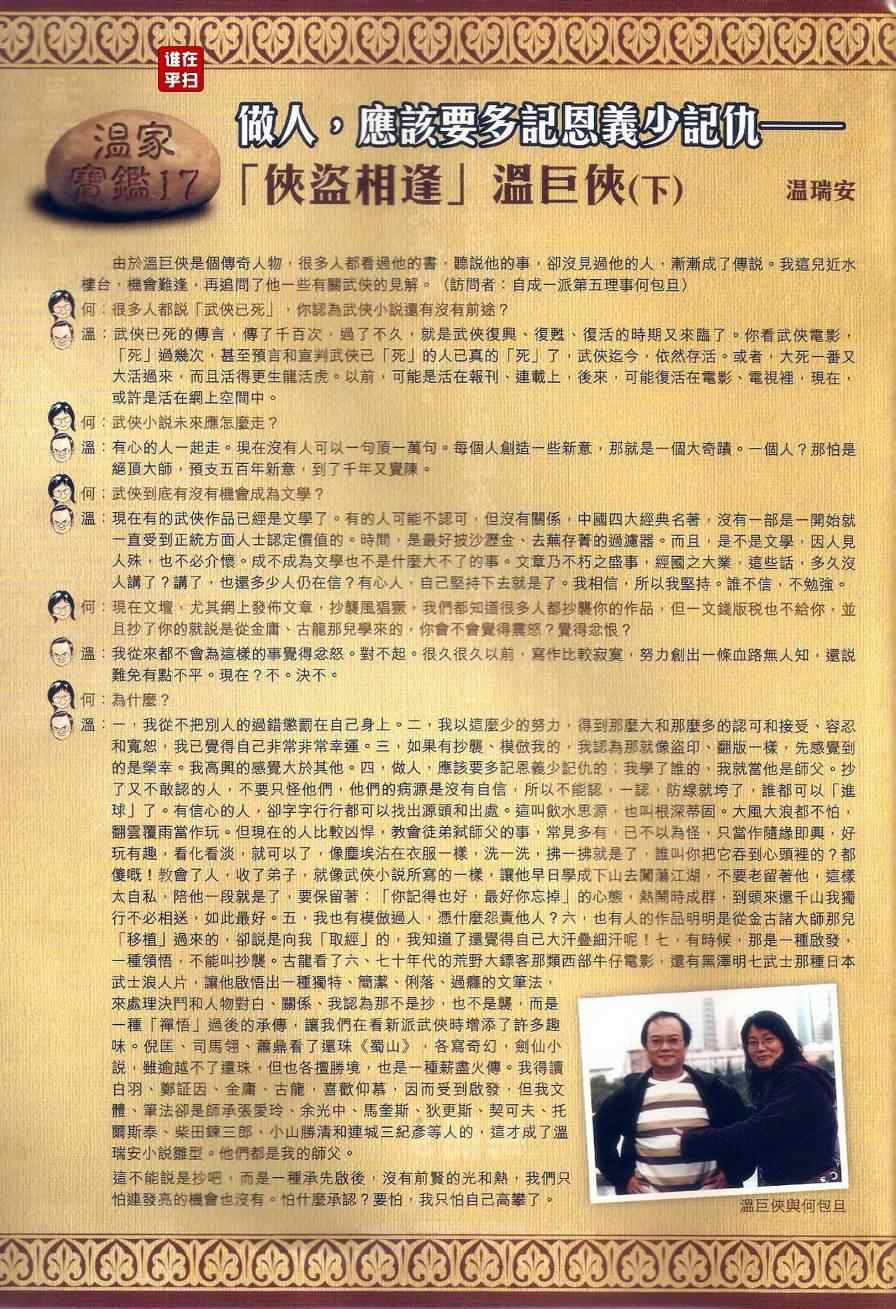 谁在
乎扫
溫家
寶鑑17
做人，應該要多記恩義少記仇——
「俠盜相逢」溫巨俠(下)
温瑞安
由於溫巨俠是個傳奇人物，很多人都看過他的書，聽說他的事，卻沒見過他的人，漸漸成了傳說。我這兒近水
樓台，機會難逢，再追問了他一些有關武俠的見解。（訪問者：自成一派第五理事何包旦）
何：很多人都說「武俠已死」，你認為武俠小說還有沒有前途？
溫：武俠已死的傳言，傳了千百次，過了不久，就是武俠復興、復甦、復活的時期又來臨了。你看武俠電影，
「死」過幾次，甚至預言和宣判武俠已「死」的人已真的「死」了，武俠迄今，依然存活。或者，大死一番又
大活過來，而且活得更生龍活虎。以前，可能是活在報刊、連載上，後來，可能復活在電影、電視裡，現在，
或許是活在網上空間中。
何：武俠小說未來應怎麼走？
溫：有心的人一起走。現在沒有人可以一句頂一萬句。每個人創造一些新意，那就是一個大奇蹟。一個人？那怕是
絕頂大師，預支五百年新意，到了千年又覺陳。
何：武俠到底有沒有機會成為文學？
溫：現在有的武俠作品已經是文學了。有的人可能不認可，但沒有關係，中國四大經典名著，沒有一部是一開始就
一直受到正統方面人士認定價值的。時間，是最好披沙瀝金、去蕪存菁的過濾器。而且，是不是文學，因人見
人殊，也不必介懷。成不成為文學也不是什麼大不了的事。文章乃不朽之盛事，經國之大業，這些話，多久沒
人講了？講了，也還多少人仍在信？有心人，自己堅持下去就是了。我相信，所以我堅持。誰不信，不勉強。
何：現在文壇，尤其網上發佈文章，抄襲風猖獗，我們都知道很多人都抄襲你的作品，但一文錢版税也不給你，並
且抄了你的就說是從金庸、古龍那兒學來的，你會不會覺得震怒？覺得忿恨？
溫：我從來都不會為這樣的事覺得忿怒。對不起。很久很久以前，寫作比較寂寞，努力創出一條血路無人知，還說
難免有點不平。現在？不。決不。
何：為什麼？
溫：一，我從不把別人的過錯懲罰在自己身上。二，我以這麼少的努力，得到那麼大和那麼多的認可和接受、容忍
和寬恕，我已覺得自己非常非常幸運。三，如果有抄襲、模倣我的，我認為那就像盜印、翻版一樣，先感覺到
的是榮幸。我高興的感覺大於其他。四，做人，應該要多記恩義少記仇的；我學了誰的，我就當他是師父。抄
了又不敢認的人，不要只怪他們，他們的病源是沒有自信，所以不能認，一認，防線就垮了，誰都可以「進
球」了。有信心的人，卻字字行行都可以找出源頭和出處。這叫飲水思源，也叫根深蒂固。大風大浪都不怕，
翻雲覆雨當作玩。但現在的人比較凶悍，教會徒弟弒師父的事，常見多有，已不以為怪，只當作隨緣即興，好
玩有趣，看化看淡，就可以了，像塵埃沾在衣服一樣，洗一洗，拂一拂就是了，誰叫你把它吞到心頭裡的？都
傻嘅！教會了人，收了弟子，就像武俠小說所寫的一樣，讓他早日學成下山去闖蕩江湖，不要老留著他，這樣
太自私，陪他一段就是了，要保留著：「你記得也好，最好你忘掉」的心態，熱鬧時成群，到頭來還千山我獨
行不必相送，如此最好。五，我也有模倣過人，憑什麼怨責他人？六，也有人的作品明明是從金古諸大師那兒
「移植」過來的，卻說是向我「取經」的，我知道了還覺得自己大汗疊細汗呢！七，有時候，那是一種啟發，
一種領悟，不能叫抄襲。古龍看了六、七十年代的荒野大鏢客那類西部牛仔電影，還有黑澤明七武士那種日本
武士浪人片，讓他啟悟出一種獨特、簡潔、俐落、過癮的文筆法，
來處理決鬥和人物對白、關係、我認為那不是抄，也不是襲，而是
一種「禪悟」過後的承傳，讓我們在看新派武俠時增添了許多趣
味。倪匡、司馬翎、蕭鼎看了還珠《蜀山》，各寫奇幻，劍仙小
說，雖逾越不了還珠，但也各擅勝境，也是一種薪盡火傳。我得讀
白羽、鄭証因、金庸、古龍，喜歡仰慕，因而受到啟發，但我文
體、筆法卻是師承張愛玲、余光中、馬奎斯、狄更斯、契可夫、托
爾斯泰、柴田鍊三郎、小山勝清和連城三紀彥等人的，這才成了溫
瑞安小說雛型。他們都是我的師父。
這不能說是抄吧，而是一種承先啟後，沒有前賢的光和熱，我們只
怕連發亮的機會也沒有。怕什麼承認？要怕，我只怕自己高攀了。
溫巨俠與何包旦